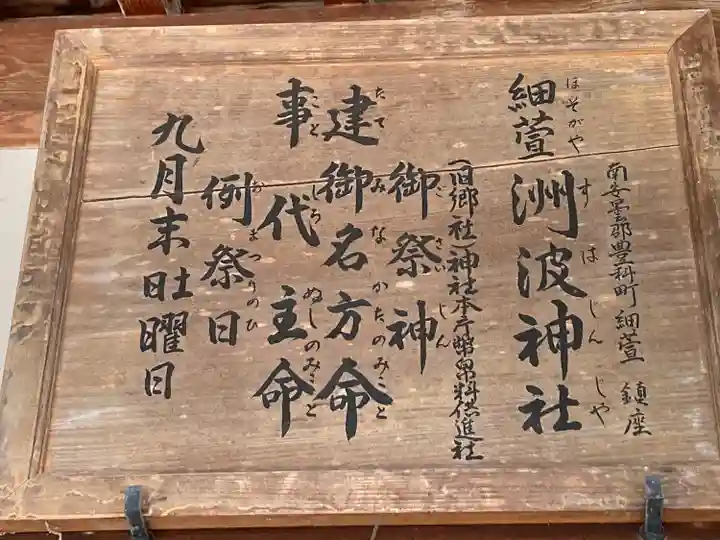 南安曇郡豊科町 細萱 鎮座
ほそがや すはじんじや
細萱洲波神社
(旧郷社)神社本庁幣帛料供進社
ごさいじん
御祭神
たてみなかたのみこと
建御名方命
ことしろぬしのみこと
事代主命
おまつりのひ
例祭日
九月末土日曜日